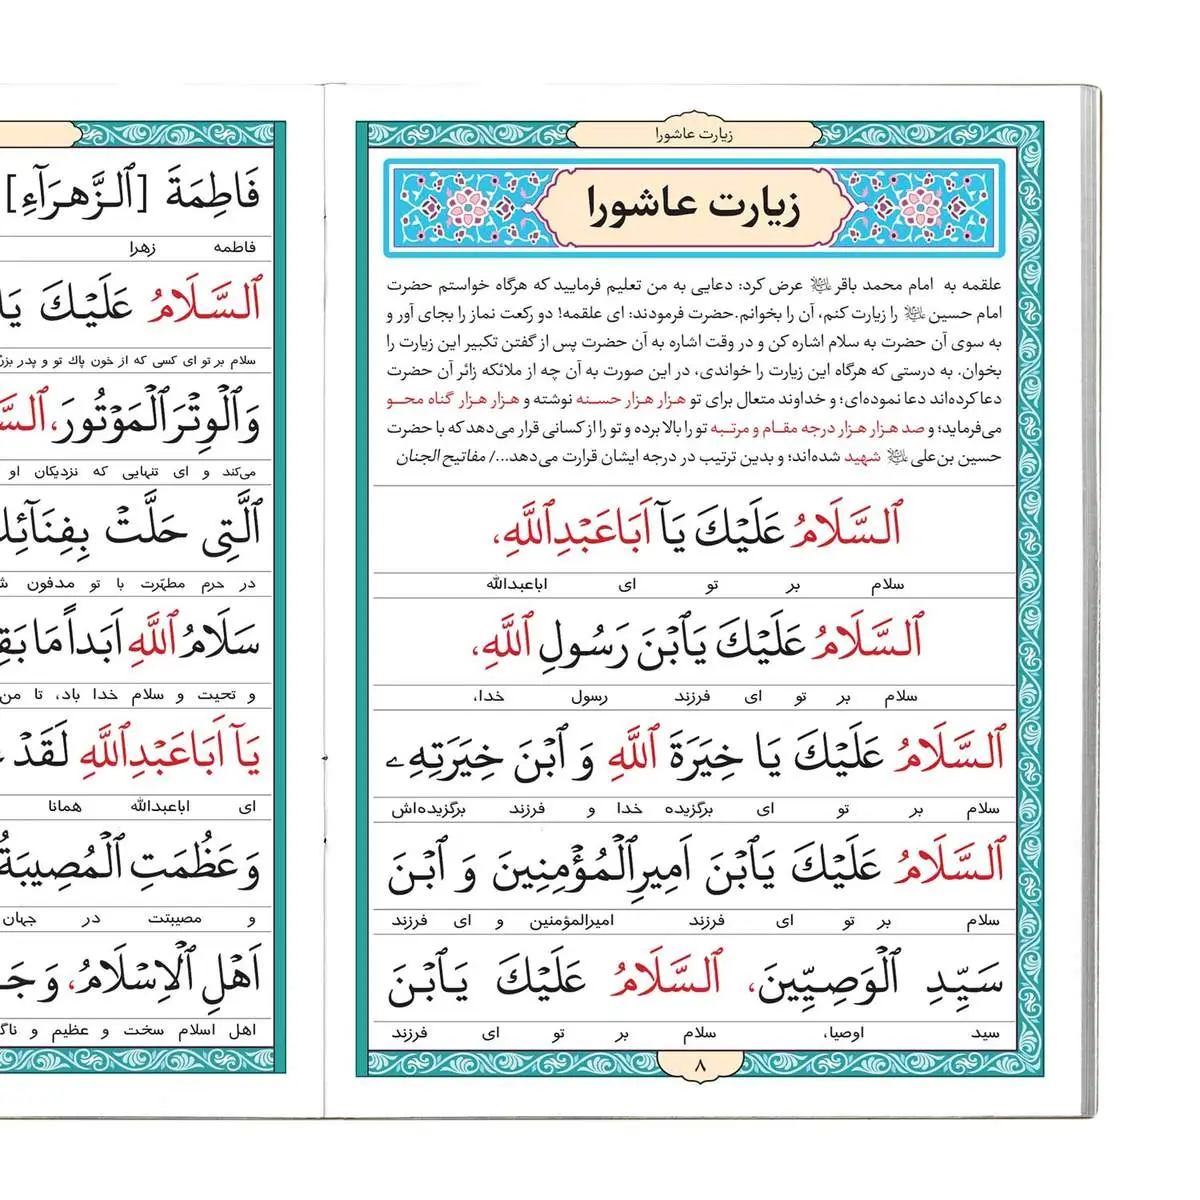 زیارت عاشورا
زیارت عاشورا
علقمه به امام محمد باقر علیه‌السلام عرض کرد: دعایی به من تعلیم فرمایید که هرگاه خواستم حضرت
امام حسین علیه‌السلام را زیارت کنم، آن را بخوانم.حضرت فرمودند: ای علقمه! دو رکعت نماز را بجای آور و
به سوی آن حضرت به سلام اشاره کن و در وقت اشاره به آن حضرت پس از گفتن تکبیر این زیارت را
بخوان. به درستی که هرگاه این زیارت را خواندی، در این صورت به آن چه از ملائکه زائر آن حضرت
دعا کرده‌اند دعا نموده‌ای؛ و خداوند متعال برای تو هزار هزار حسنه نوشته و هزار هزار گناه محو
می‌فرماید؛ و صد هزار هزار درجه مقام و مرتبه تو را بالا برده و تو را از کسانی قرار می‌دهد که با حضرت
حسین بن‌علی علیه‌السلام شهید شده‌اند؛ و بدین ترتیب در درجه ایشان قرارت می‌دهد.../ مفاتیح الجنان
اَلسَّلَامُ عَلَيْكَ يَآ اَبَاعَبْدِاللَّهِ،
سلام بر تو ای اباعبدالله
اَلسَّلَامُ عَلَيْكَ يَابْنَ رَسُولِ اللَّهِ،
سلام بر تو ای فرزند رسول خدا،
اَلسَّلَامُ عَلَيْكَ يَا خِيَرَةَ اللَّهِ وَ ابْنَ خِيَرَتِهِ
سلام بر تو ای برگزیده خدا و فرزند برگزیده‌اش
اَلسَّلَامُ عَلَيْكَ يَابْنَ اَمِيرِالْمُؤْمِنِينَ وَ ابْنَ
سلام بر تو ای فرزند امیرالمؤمنین و ای فرزند
سَيِّدِ الْوَصِيِّينَ، اَلسَّلَامُ عَلَيْكَ يَابْنَ
سید اوصیا، سلام بر تو ای فرزند
۸
فَاطِمَةَ [الزَّهرَآءِ]
فاطمه زهرا
اَلسَّلَامُ عَلَيْكَ يَا
سلام بر تو ای کسی که از خون پاك تو و پدر
وَالْوِتْرَ الْمَوْتُورَ،
می‌کند و ای تنهایی که نزدیکان او
الَّتِي حَلَّتْ
در حرم مطهّرت با تو مدفون
سَلَامُ اللَّهِ اَبَداً مَا
و تحیت و سلام خدا باد، تا من
يَآ اَبَاعَبْدِاللَّهِ لَقَدْ
ای اباعبدالله همانا
وَ عَظُمَتِ الْمُصِيبَةُ
و مصیبتت در جهان
اَهْلِ الْاِسْلَامُ،
اهل اسلام سخت و عظیم و